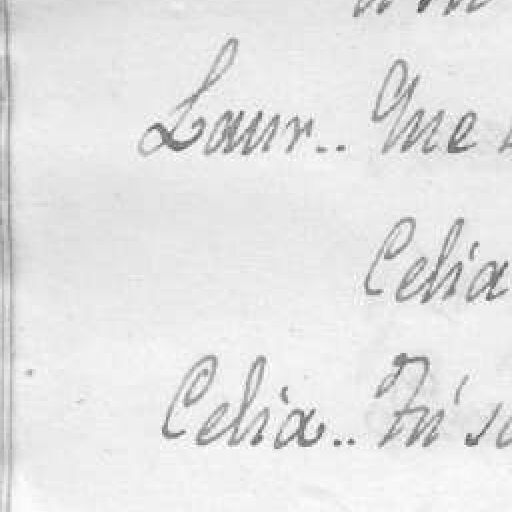 Laur.. Que
Celia
Celia.. Tú